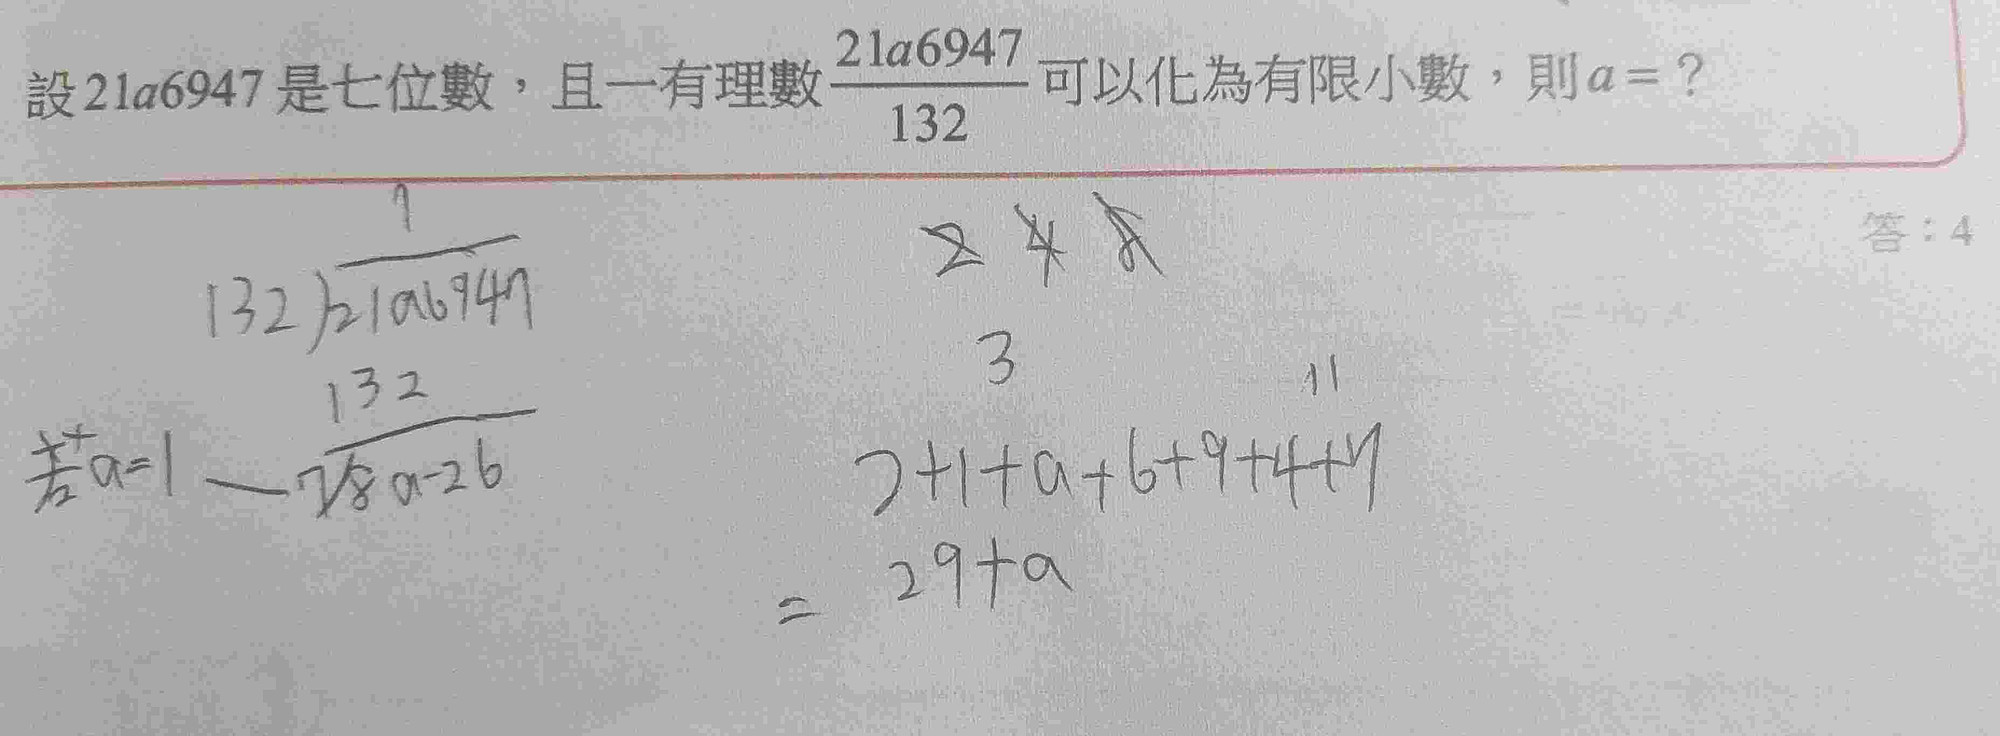 設21a6947是七位數，且一有理數$\frac{21a6947}{132}$可以化為有限小數，則a=？
答：4
1
132)21a6947
132
若a=1
28a-26
2 4 8
3
11
2+1+a+6+9+4+7
= 29+a